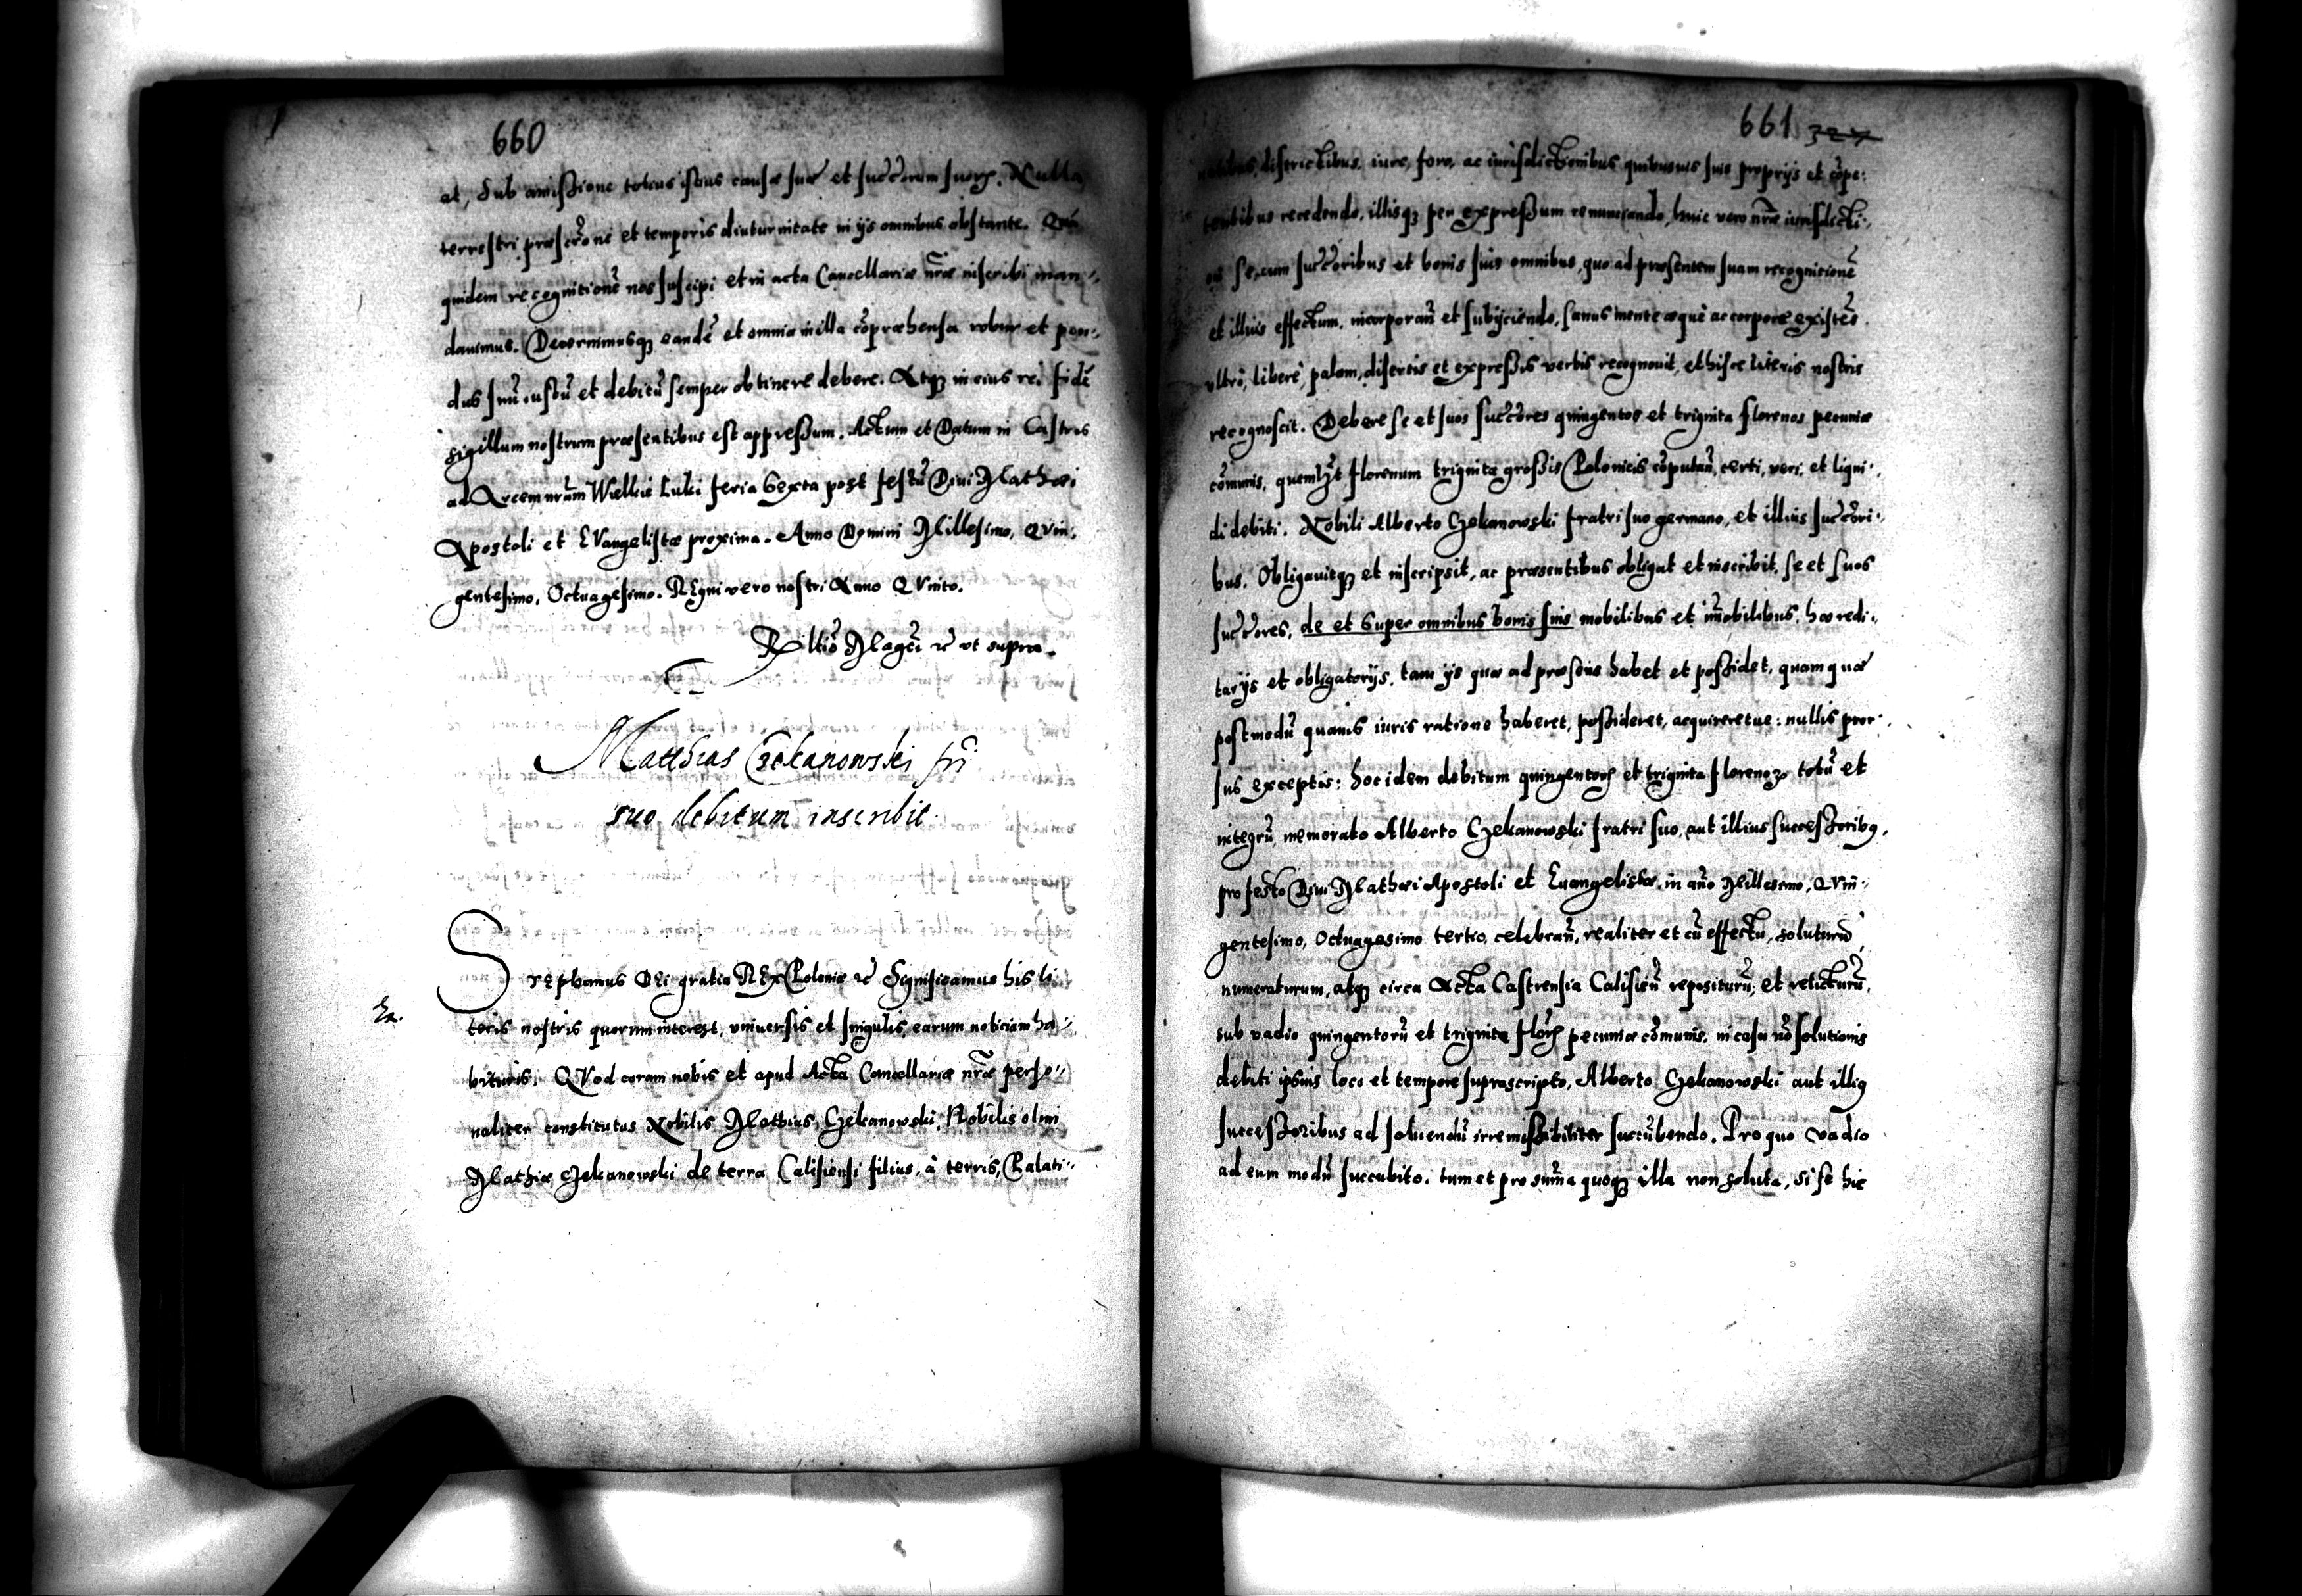 660
et, sub amissione totius istius causæ suæ et succrum suoꝝ. Nulla
terrestri præscrōne et temporis diuturnitate in ijs omnibus obstante. Quā
quidem recognitionē nos suscipi et in acta Cancellariæ nr̄æ inscribi man„
dauimus. Decernimusqȝ eandē et omnia in illa cōpræhensa robur et pon„
dus suū iustū et debitū semper obtinere debere. Atqȝ in eius rei fidē
sigillum nostrum præsentibus est appressum. Actum et Datum in Castris
ad Arcem nr̄am Wielkie Luki feria Sexta post festū Diui Mathæi
Apostoli et EVangelistæ proxima. Anno Domini Millesimo, QVin„
gentesimo, Octuagesimo. REgni vero nostri Anno QVinto.
Rltio Magci etc̄ vt supra.
Matthias Czekanowski frī
suo debitum inscribit.
Stephanus DEi gratia REx Poloniæ etc̄ Significamus his li„
Ex.
teris nostris quorum interest, vniuersis et singulis, earum noticiam ha„
bituris, QVod coram nobis et apud Acta Cancellariæ nr̄æ perso„
naliter constitutus Nobilis Mathias Czekanowski, Nobilis olim
Mathiæ Czekanowski de terra Calisiensi filius, à terris, Palati„
661 327
natibus, districtibus, iure, foro, ac iurisdictionibus quibusuis suis proprijs et cōpe„
tentibus recedendo, illisqȝ per expressum renunciando, huic vero nr̄æ iurisdicti„
oni se, cum succr̄oribus et bonis suis omnibus, quo ad præsentem suam recognicionē
et illius effectum, incorporan̄ et subijciendo, sanus mente æquè ac corpore existēs.
vltrò, liberè, palam, disertis et expressis verbis recognouit, et hisce literis nostris
recognoscit. Debere se et suos succr̄ores quingentos et triginta florenos pecuniæ
cōmunis, quemlꝫt florenum triginta grossis Polonicis cōputan̄, certi, veri, et liqui„
di debiti. Nobili Alberto Czekanowski fratri suo germano, et illius succr̄ori„
bus. Obligauitqȝ et inscripsit, ac præsentibus obligat et inscribit, se et suos
succr̄ores, de et super omnibus bonis suis mobilibus et īmobilibus, hæredi„
tarijs et obligatorijs, tam ijs quæ ad præsens habet et possidet, quam quæ
postmodū quauis iuris ratione haberet, possideret, acquireretue: nullis pror„
sus exceptis: hoc idem debitum quingentoꝝ et triginta florenoꝝ totū et
integrū, memorato Alberto Czekanowski fratri suo, aut illius successoribꝰ,
pro festo Diui Mathæi Apostoli et Euangelistæ, in an̄o Millesimo, QVin„
gentesimo, Octuagesimo tertio, celebran̄, realiter et cū effectu, soluturū,
numeraturum, atqȝ circa Acta Castrensia Calisien̄ repositurū, et relicturū,
sub vadio quingentorū et triginta floꝝ pecuniæ cōmunis, in casu nō solutionis
debiti ipsius loco et tempore suprascripto, Alberto Czekanowski aut illiꝰ
successoribus ad soluendū irremissibiliter succūbendo. Pro quo vadio
ad eum modū succubito, tum et pro sum̄a quoqȝ illa non soluta, si se hic